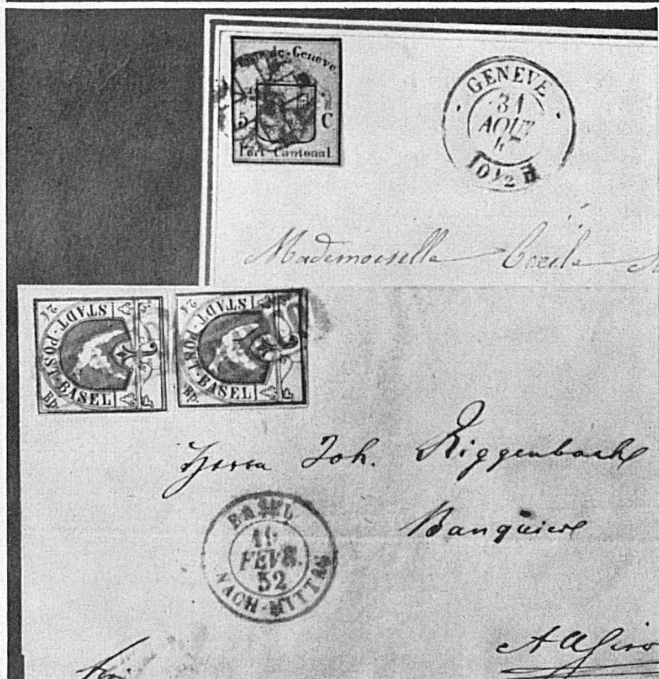 Poste de Genève
5 C
Port Cantonal
GENEVE
31
AOUT
47
10½ H
Mademoiselle Cecile
STADT-POST-BASEL
2½ Rp.
STADT-POST-BASEL
2½ Rp.
Herrn Joh. Riggenbach
Banquier
BASEL
FEVR.
52
NACH-MITTAG